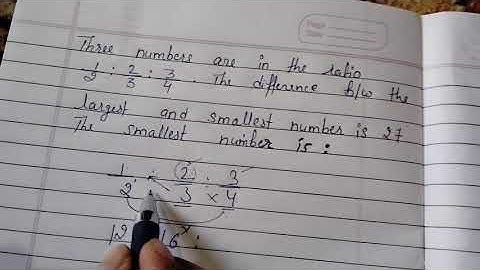 Page
Date
Three numbers are in the ratio
1/2 : 2/3 : 3/4 . The difference b/w the
largest and smallest number is 27
The smallest number is :
1/2 : 2/3 : 3/4
×